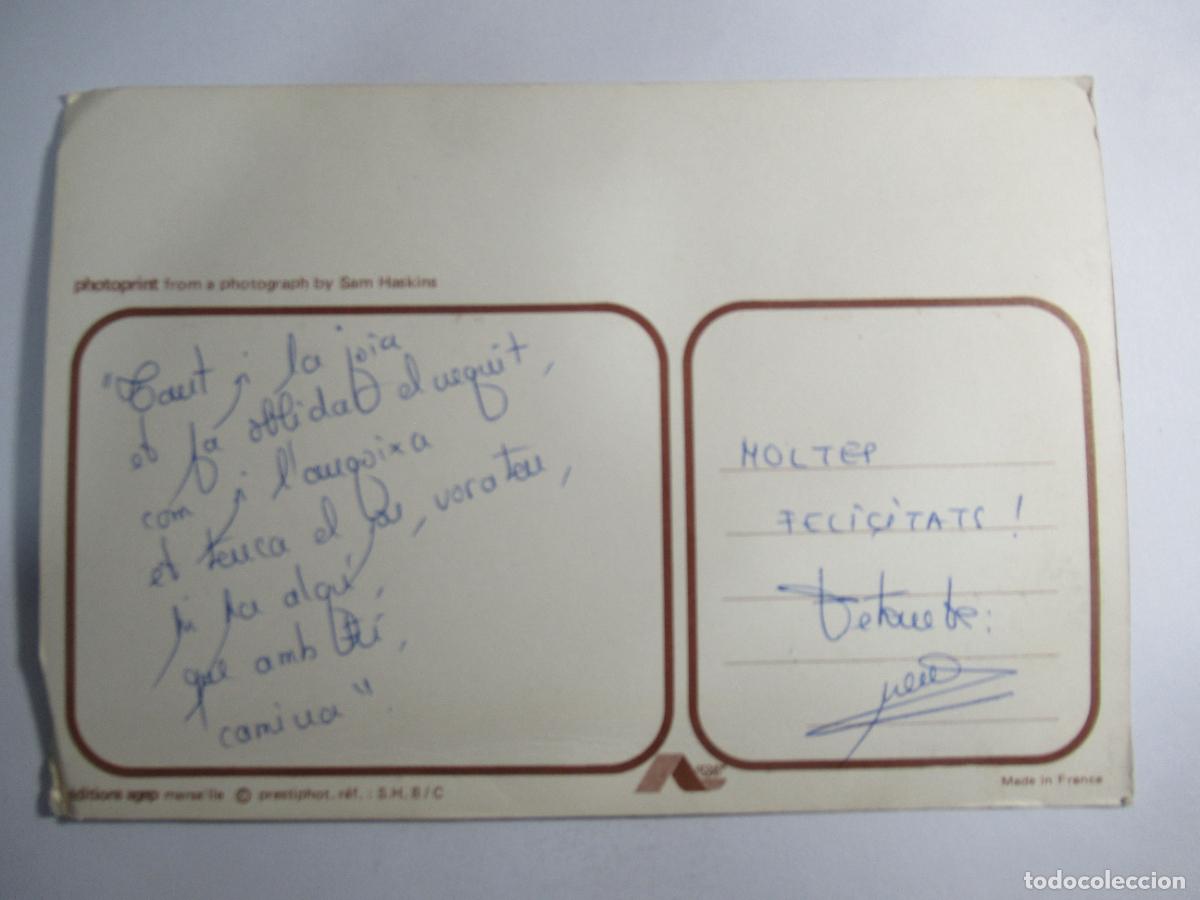 photoprint from a photograph by Sam Haskins
"Tant si la joia
et fa oblidar el neguit,
com si l'angoixa
et trenca el pas, vora teu,
hi ha algú,
que amb tú,
camina".
MOLTEP
FELIÇITATS!
editions agep marseille © prestiphot. réf. : S.H. 8/C
Made in France
todocoleccion